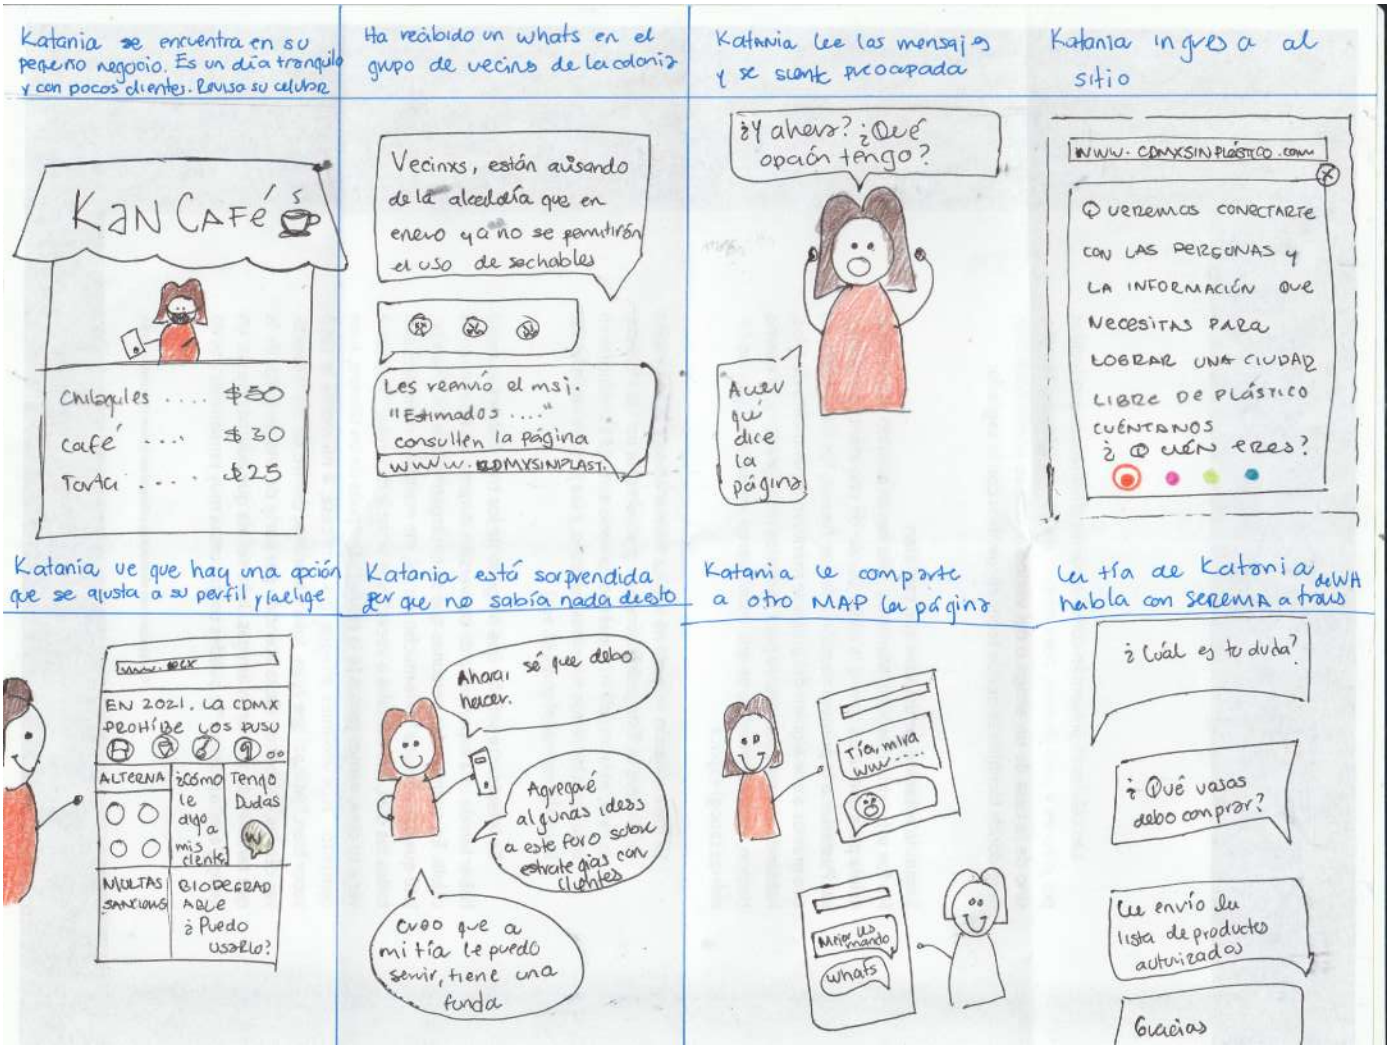 Katania se encuentra en su
pequeño negocio. Es un día tranquilo
y con pocos clientes. Revisa su celular
KAN CAFÉ
Chilaquiles .... $50
café .... $30
Torta .... $25
Ha recibido un whats en el
grupo de vecinos de la colonia
Vecinxs, están avisando
de la alcaldía que en
enero ya no se permitirán
el uso de sechables
Les reenvío el msj.
"Estimados ...."
consulten la página
WWW.CDMXSINPLAST.
Katania lee los mensajes
y se siente preocupada
¿Y ahora? ¿Qué
opción tengo?
A ver
qué
dice
la
página
Katania ingresa al
sitio
WWW.CDMXSINPLÁSTICO.com
X
QUEREMOS CONECTARTE
CON LAS PERSONAS Y
LA INFORMACIÓN QUE
NECESITAS PARA
LOGRAR UNA CIUDAD
LIBRE DE PLÁSTICO
CUÉNTANOS
¿QUIÉN ERES?
Katania ve que hay una opción
que se ajusta a su perfil y la elige
EN 2021, LA CDMX
PROHÍBE LOS PUSU
ALTERNA
¿Cómo
le
digo a
mis
cliente?
Tengo
Dudas
W
MULTAS
SANCIONES
BIODEGRAD
ABLE
¿Puedo
usarlo?
Katania está sorprendida
por que no sabía nada de esto
Ahora, sé que debo
hacer.
Agregaré
algunas ideas
a este foro sobre
estrategias con
clientes
Creo que a
mi tía le puede
servir, tiene una
fonda
Katania le comparte
a otro MAP la página
Tía, mira
www....
Mejor les
mando
whats
La tía de Katania
habla con SEDEMA a través de WA
¿Cuál es tu duda?
¿Qué vasos
debo comprar?
Le envío la
lista de productos
autorizados
Gracias